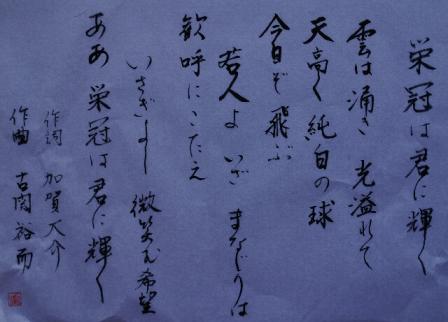 栄冠は君に輝く
雲は涌き 光溢れて
天高く純白の球
今日ぞ飛ぶ
若人よ いざ まなじりは
歓呼にこたえ
いさぎよし 微笑む希望
ああ 栄冠は君に輝く
作詞 加賀大介
作曲 古関裕而